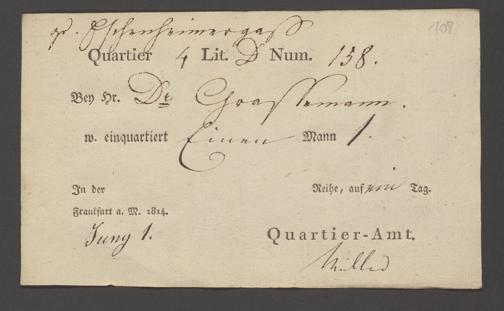 gr. Eschenheimergass 108
Quartier 4 Lit. D Num. 158.
Bey Hr. Dr Grassemann.
w. einquartiert Einen Mann 1.
In der Reihe, auf ein Tag.
Frankfurt a. M. 1814.
Juny 1.
Quartier-Amt.
Miller